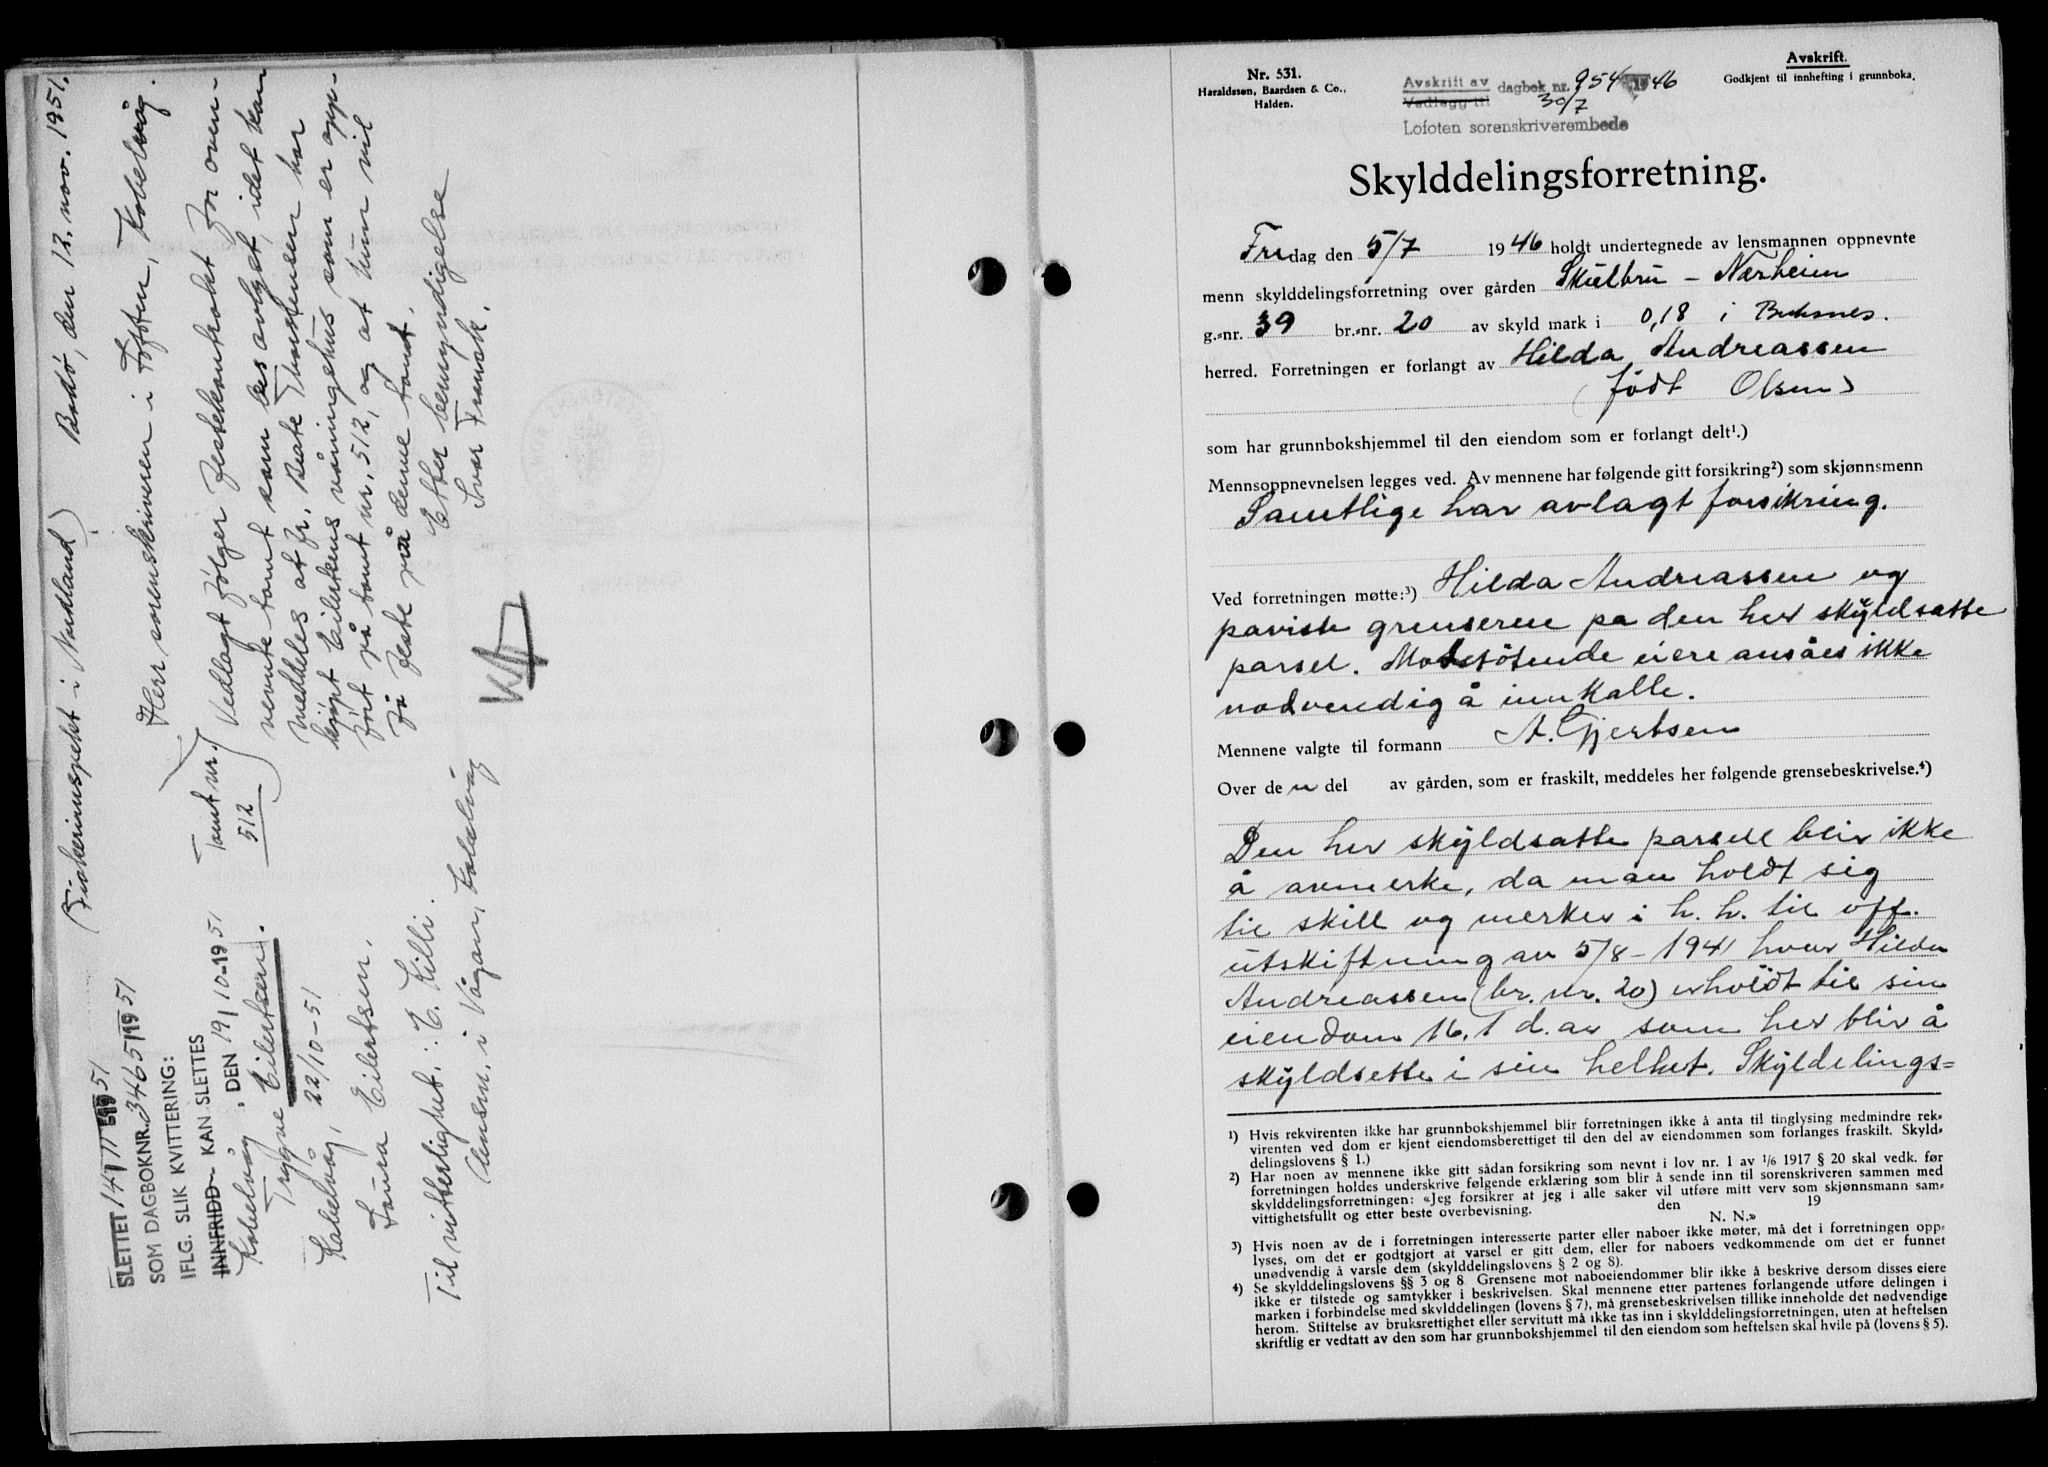 (Fiskeriinspekt i Nordland) Bodø, den 12. nov. 1951.
Herr sorenskriveren i Lofoten, Kabelvåg.
Tomt nr.
512
Vedlagt følger festekontrakt for oven-
nevnte tomt som bes avlyst, idet han
meddeles at fr. Beate Thorstensen har
kjøpt Eilertsens våningshus som er opp-
ført på tomt nr. 512, og at hun vil
få feste på denne tomt.
Etter bemyndigelse
Svar Fransk.
SLETTET 14/11 1951
SOM DAGBOKNR. 3465/1951
IFLG. SLIK KVITTERING:
INNFRIDD - KAN SLETTES
Kabelvåg, DEN 19/10-1951
Trygve Eilertsen.
Kabelvåg, 22/10-51
Laura Eilertsen.
Til vitterlighet: E. Killi.
lensm. i Vågan, Kabelvåg
Nr. 531.
Haraldssøn, Baardsen & Co.,
Halden.
Avskrift av
Vedlegg til
dagbok nr. 954 1946
30/7
Lofoten sorenskriverembede
Avskrift.
Godkjent til innhefting i grunnboka.
Skylddelingsforretning.
Fredag den 5/7 1946 holdt undertegnede av lensmannen oppnevnte
menn skylddelingsforretning over gården Skulbru - Nærheim
g.=nr. 39 br.=nr. 20 av skyld mark i 0,18 i Buksnes.
herred. Forretningen er forlangt av Hilda Andreassen
(født Olsen)
som har grunnbokshjemmel til den eiendom som er forlangt delt¹.)
Mennsoppnevnelsen legges ved. Av mennene har følgende gitt forsikring²) som skjønnsmenn
Samtlige har avlagt forsikring.
Ved forretningen møtte:³) Hilda Andreassen og
påviste grensene på den her skyldsatte
parsel. Motstøtende eiere ansåes ikke
nødvendig å innkalle.
Mennene valgte til formann A. Gjertsen
Over den del av gården, som er fraskilt, meddeles her følgende grensebeskrivelse.⁴)
Den her skyldsatte parsell blir ikke
å avmerke, da man holdt sig
til skill og merker i h. h. til off.
utskiftning av 5/8-1941 hvor Hilda
Andreassen (br. nr. 20) erholdt til sin
eiendom 16,1 d.ar som her blir å
skyldsette i sin helhet. Skyldelings=
¹) Hvis rekvirenten ikke har grunnbokshjemmel blir forretningen ikke å anta til tinglysing medmindre rek-
virenten ved dom er kjent eiendomsberettiget til den del av eiendommen som forlanges fraskilt. Skyld-
delingslovens § 1.)
²) Har noen av mennene ikke gitt sådan forsikring som nevnt i lov nr. 1 av 1/6 1917 § 20 skal vedk. før
forretningen holdes underskrive følgende erklæring som blir å sende inn til sorenskriveren sammen med
skylddelingsforretningen: «Jeg forsikrer at jeg i alle saker vil utføre mitt verv som skjønnsmann sam-
vittighetsfullt og etter beste overbevisning. den 19
N. N.»
³) Hvis noen av de i forretningen interesserte parter eller naboer ikke møter, må det i forretningen opp-
lyses, om det er godtgjort at varsel er gitt dem, eller for naboers vedkommende om det er funnet
unødvendig å varsle dem (skylddelingslovens § 2 og 8).
⁴) Se skylddelingslovens §§ 3 og 8. Grensene mot naboeiendommer blir ikke å beskrive dersom disses eiere
ikke er tilstede og samtykker i beskrivelsen. Skal mennene etter partenes forlangende utføre delingen i
marken i forbindelse med skylddelingen (lovens § 7), må grensebeskrivelsen tillike inneholde det nødvendige
herom. Stiftelse av bruksrettighet eller servitutt må ikke tas inn i skylddelingsforretningen, uten at heftelsen
skriftlig er vedtatt av den som har grunnbokshjemmel til den eiendom som heftelsen skal hvile på (lovens § 5).